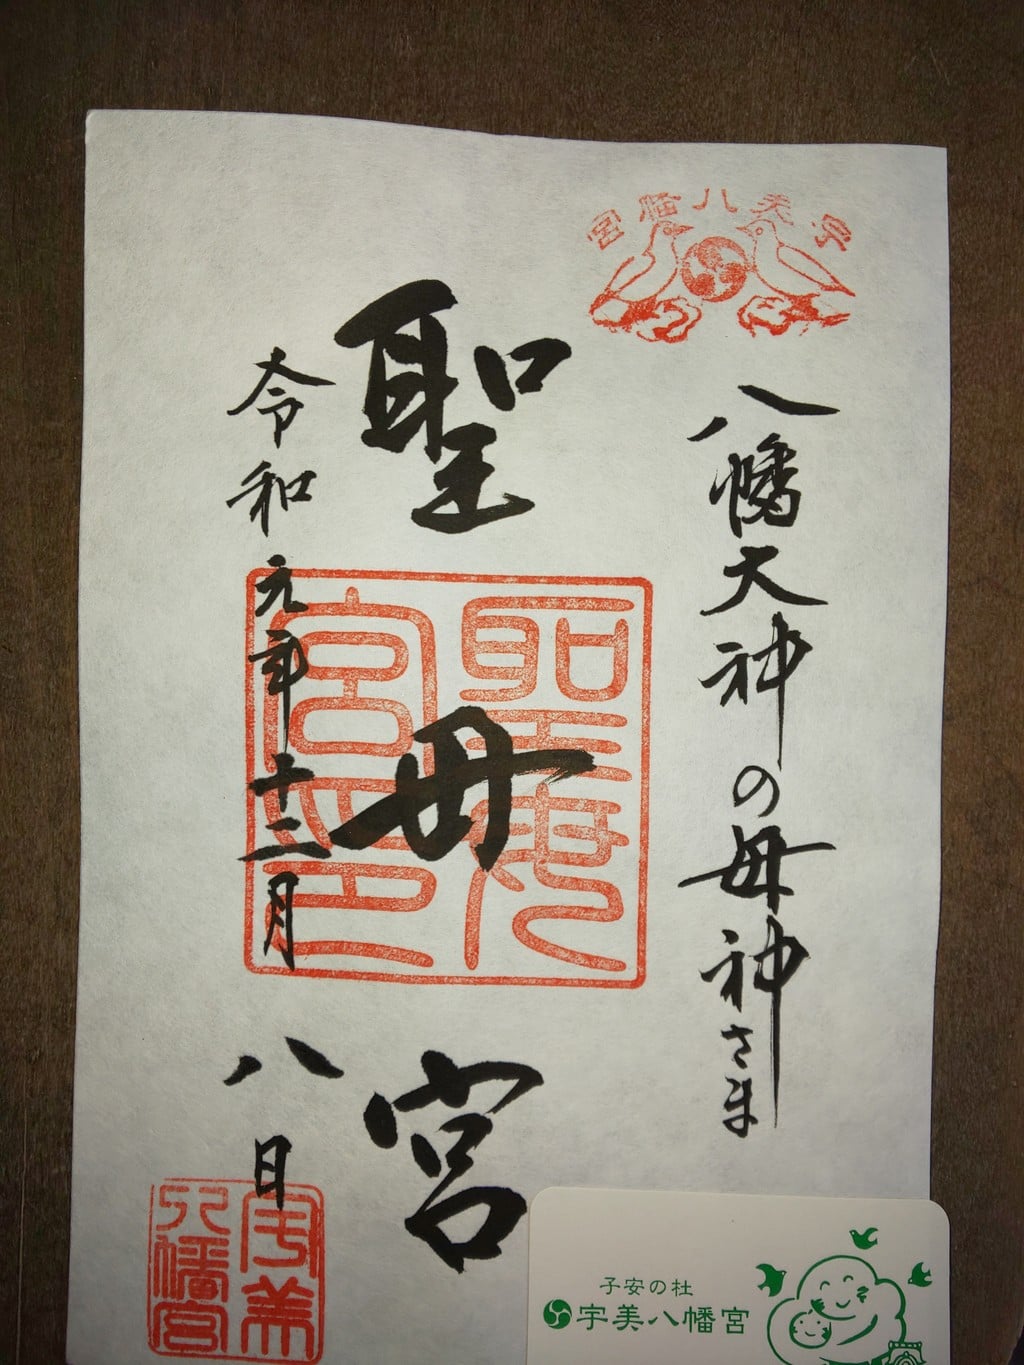 宇美八幡宮
八幡大神の母神さま
聖母宮
聖母宮印
令和元年十二月八日
宇美八幡宮
子安の杜
宇美八幡宮